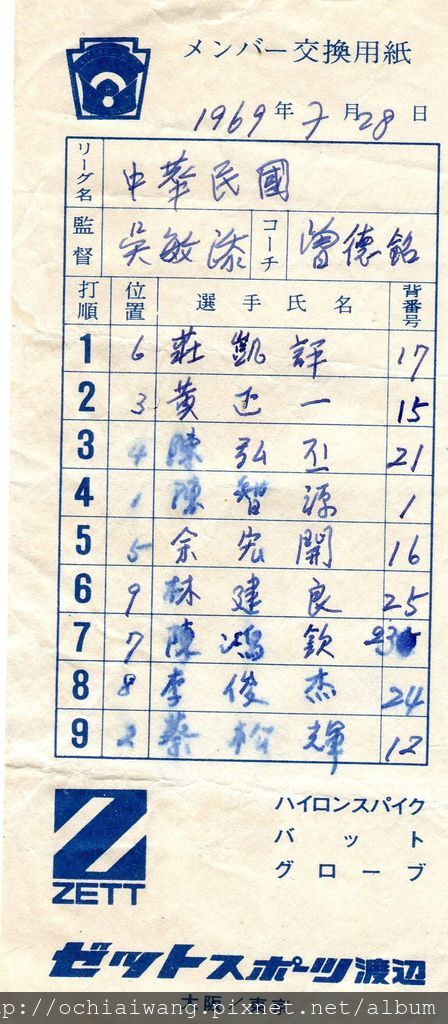 メンバー交換用紙
1969年7月28日
リーグ名 中華民國
監督 吳敏添 コーチ 曾德銘
打順 位置 選手氏名 背番号
1 6 莊凱評 17
2 3 黃正一 15
3 4 陳弘丕 21
4 1 陳智源 1
5 5 余宏開 16
6 9 林建良 25
7 7 陳鴻欽
8 8 李俊杰 24
9 2 蔡松輝 12
ZETT
ハイロンスパイク
バット
グローブ
ゼットスポーツ渡辺
大阪/東京
p://ochiaiwang.pixnet.net/album